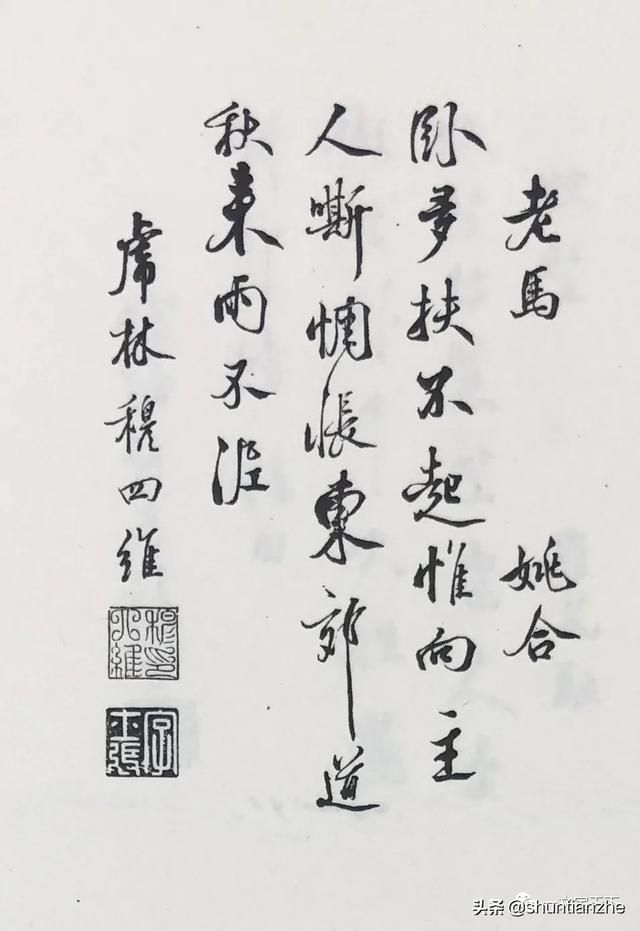 老馬 姚合
卧多扶不起惟向主
人嘶惆悵東郊道
秋來雨不泥
虎林穆四維
穆印四維
头条 @shuntianzhe